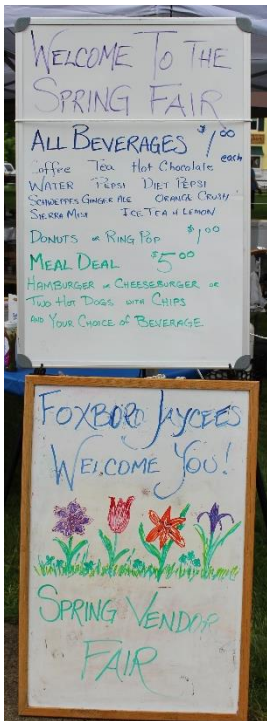 WELCOME TO THE
SPRING FAIR
ALL BEVERAGES $1.00
each
Coffee Tea Hot Chocolate
WATER PEPSI DIET PEPSI
SCHWEPPES GINGER ALE ORANGE CRUSH
SIERRA MIST ICE TEA w LEMON
DONUTS or RING POP $1.00
MEAL DEAL $5.00
HAMBURGER or CHEESEBURGER or
TWO HOT DOGS WITH CHIPS
AND YOUR CHOICE of BEVERAGE
FOXBORO JAYCEES
WELCOME YOU!
SPRING VENDOR
FAIR